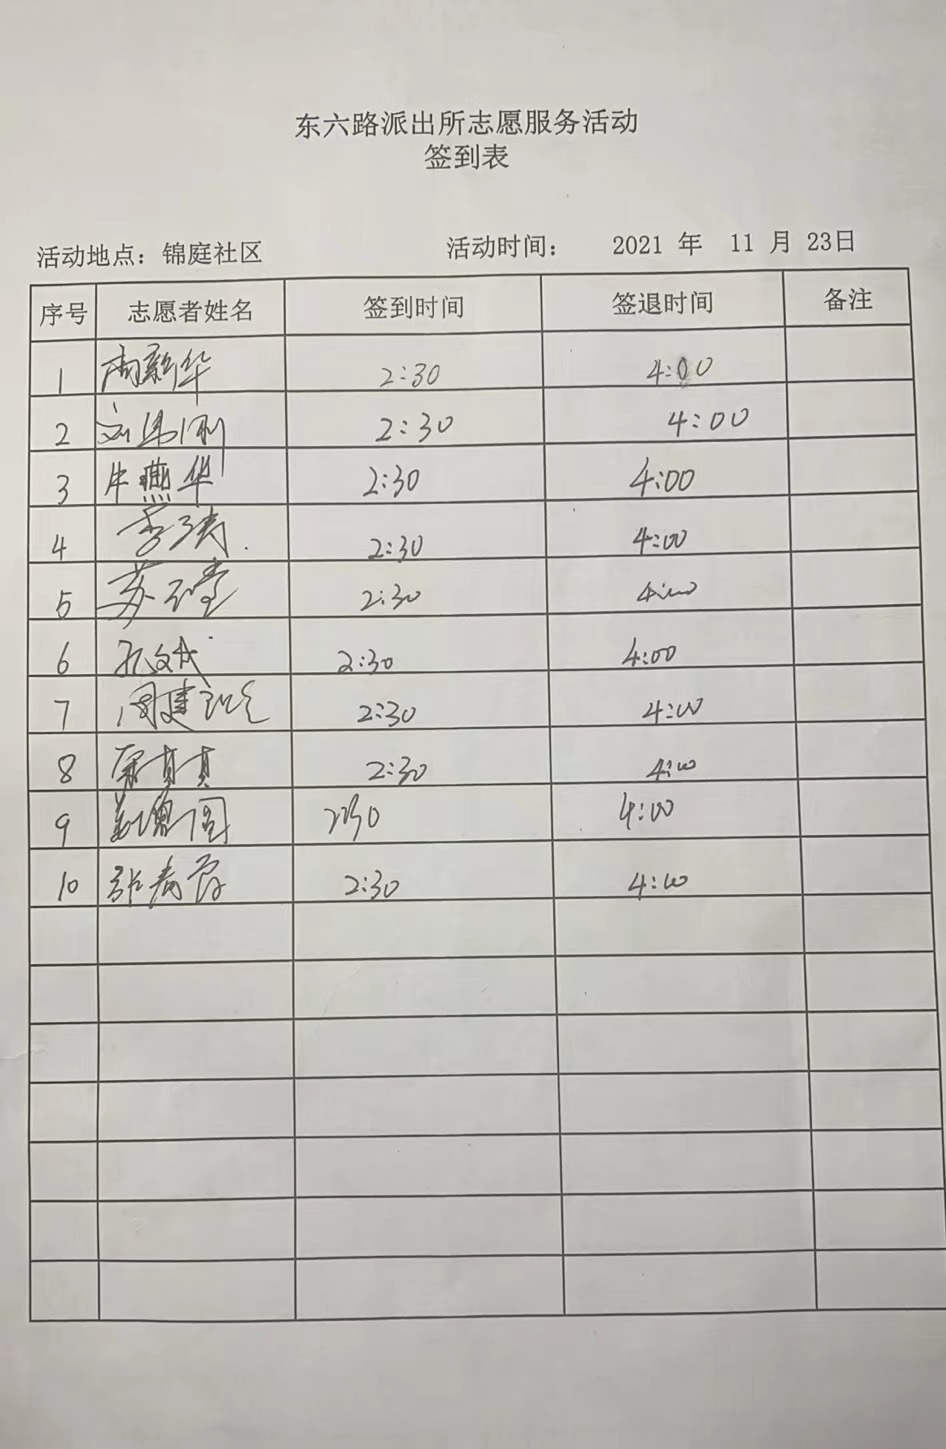 东六路派出所志愿服务活动
签到表
活动地点：锦庭社区 活动时间： 2021 年 11 月 23日
序号 志愿者姓名 签到时间 签退时间 备注
1 周新华 2:30 4:00
2 刘伟刚 2:30 4:00
3 牛燕华 2:30 4:00
4 李涛 2:30 4:00
5 苏 2:30 4:00
6 孔文成 2:30 4:00
7 周建 2:30 4:00
8 康真真 2:30 4:00
9 2:30 4:00
10 张春霞 2:30 4:00